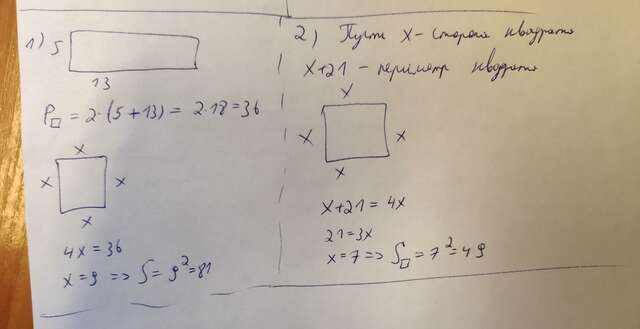 1) 5
13
P□ = 2·(5+13) = 2·18=36
x
x x
x
4x=36
x=9 => S= 9²=81
2) Пусть x-сторона квадрата
x+21 - периметр квадрата
x
x x
x
x+21 = 4x
21=3x
x=7 => S□ = 7²=49